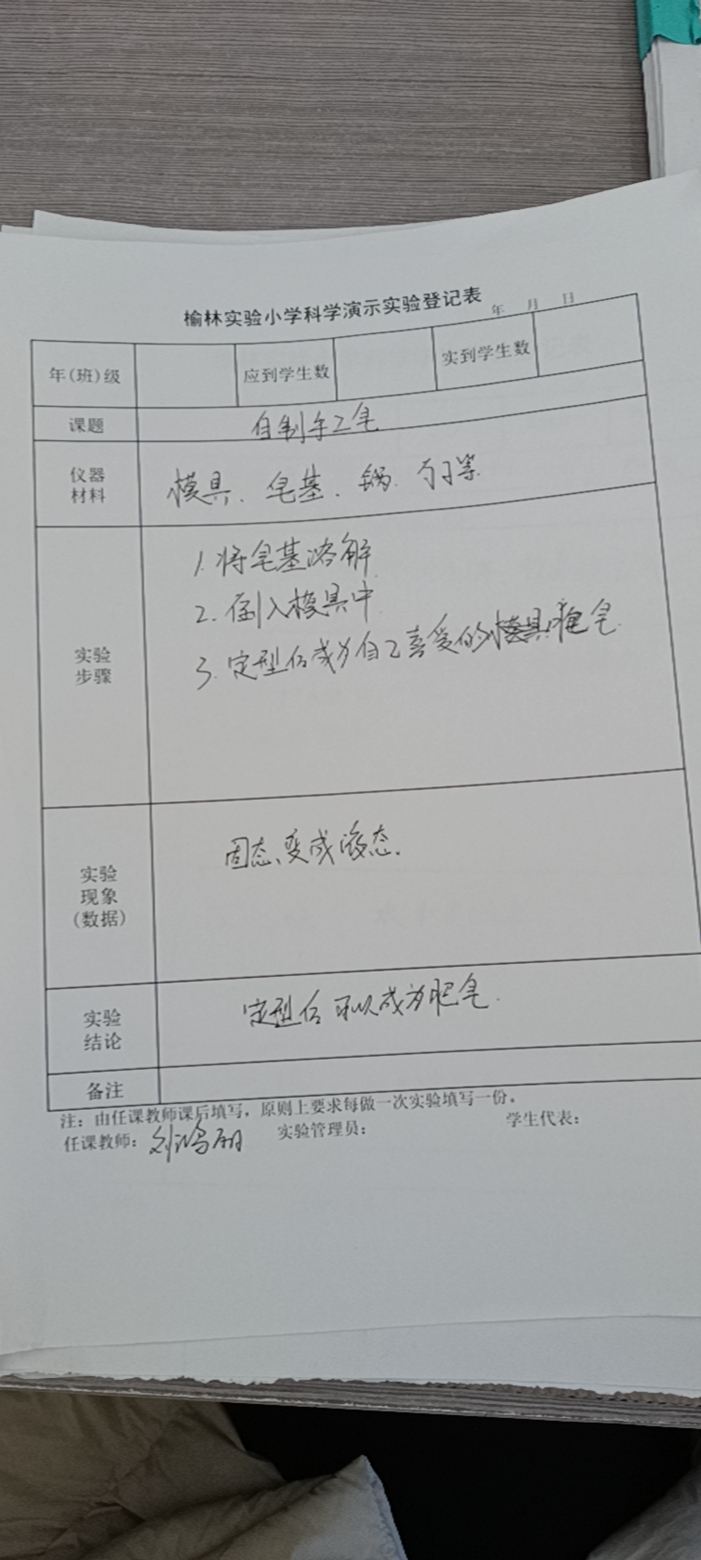 榆林实验小学科学演示实验登记表
年 月 日
年(班)级 应到学生数 实到学生数
课题 自制手工皂
仪器材料 模具、皂基、锅、勺子等
实验步骤
1.将皂基溶解
2.倒入模具中
3.定型后成为自己喜爱的模具肥皂.
实验现象(数据) 固态、变成液态.
实验结论 定型后可以成为肥皂.
备注
注：由任课教师课后填写，原则上要求每做一次实验填写一份。
任课教师：刘鸿丽 实验管理员： 学生代表：